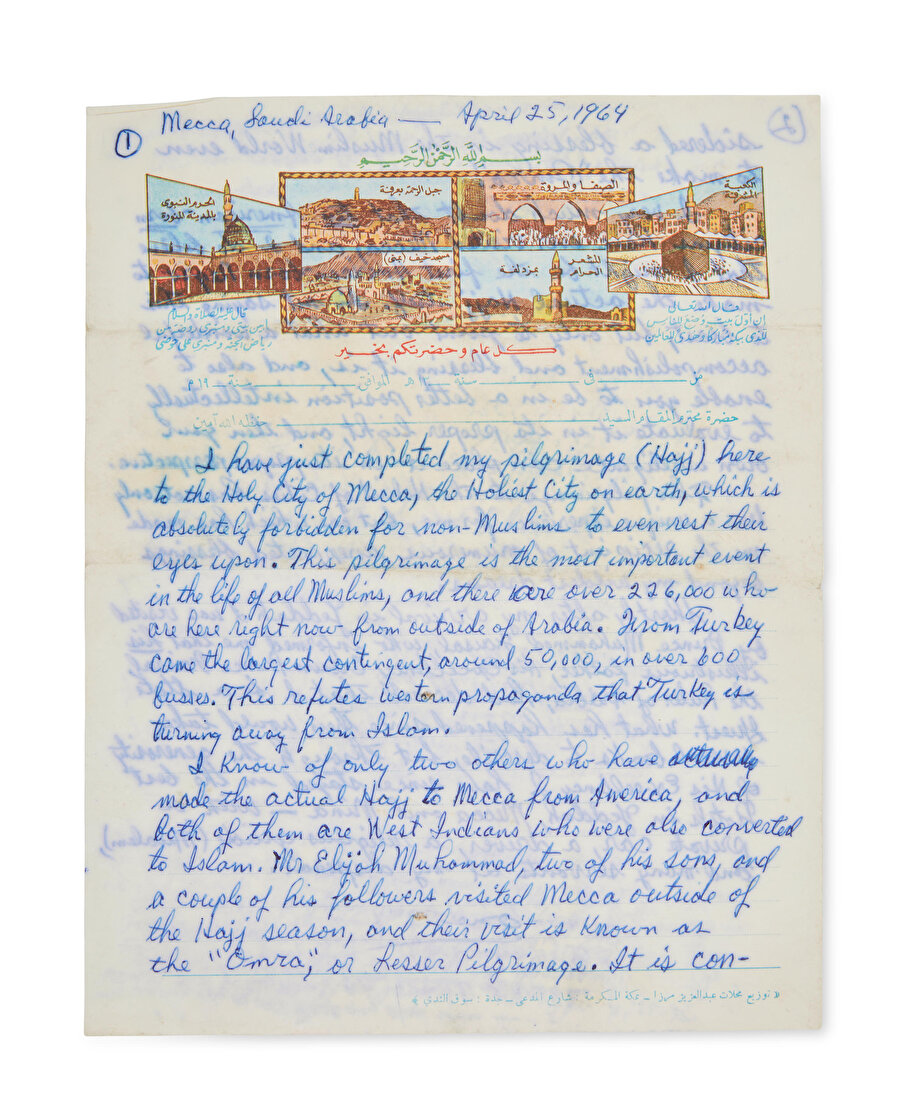 ① Mecca, Saudi Arabia — April 25, 1964
بسم الله الرحمن الرحيم
الحرم النبوي
بالمدينة المنورة
جبل الرحمة بعرفة
الصفا والمروة
الكعبة
المشرفة
مسجد خيف (منى)
المشعر
الحرام
بمزدلفة
قال الله تعالى
إن أول بيت وضع للناس
للذي ببكة مباركا وهدى للعالمين
قال عليه الصلاة والسلام
ما بين بيتي ومنبري روضة من
رياض الجنة ومنبري على حوضي
كل عام وحضرتكم بخير
من ــــ في ــــ سنة ١٣ هـ الموافق ــــ سنة ١٩ م
حضرة محترم المقام السيد ــــ حفظه الله آمين
I have just completed my pilgrimage (Hajj) here
to the Holy City of Mecca, the Holiest City on earth, which is
absolutely forbidden for non-Muslims to even rest their
eyes upon. This pilgrimage is the most important event
in the life of all Muslims, and there are over 226,000 who
are here right now from outside of Arabia. From Turkey
came the largest contingent, around 50,000, in over 600
busses. This refutes western propaganda that Turkey is
turning away from Islam.
I know of only two others who have actually
made the actual Hajj to Mecca from America, and
both of them are West Indians who were also converted
to Islam. Mr Elijah Muhammad, two of his sons, and
a couple of his followers visited Mecca outside of
the Hajj season, and their visit is known as
the "Omra", or Lesser Pilgrimage. It is con-
« توزيع محلات عبدالعزيز مرزا ـ بمكة المكرمة : شارع المدعى ـ جدة : سوق الندى »